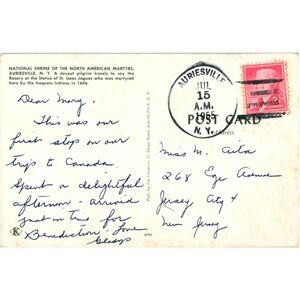 NATIONAL SHRINE OF THE NORTH AMERICAN MARTYRS,
AURIESVILLE, N. Y. A devout pilgrim kneels to say the
Rosary at the Statue of St. Isaac Jogues who was martyred
here by the Iroquois Indians in 1646.
Dear Mary,
This was our
first stop on our
trip to Canada.
Spent a delightful
afternoon - arrived
just in time for
Benediction. Love
Gladys
K
AURIESVILLE
JUL
15
A.M.
N. Y.
POST CARD
ADDRESS
Miss M.
268 Ege Avenue
Jersey City 4
New Jersey